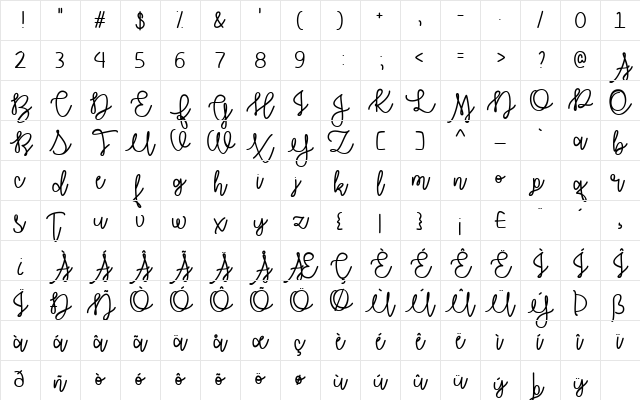 ! " # $ % & ' ( ) + , - . / 0 1
2 3 4 5 6 7 8 9 : ; < = > ? @ A
B C D E F G H I J K L M N O P Q
R S T U V W X Y Z [ ] ^ _ ` a b
c d e f g h i j k l m n o p q r
s T u v w x y z { | } ¡ £ ¨ ´ ¸
¿ À Á Â Ã Ä Å Æ Ç È É Ê Ë Ì Í Î
Ï Ð Ñ Ò Ó Ô Õ Ö Ø Ù Ú Û Ü Ý Þ ß
à á â ã ä å æ ç è é ê ë ì í î ï
ð ñ ò ó ô õ ö ø ù ú û ü ý þ ÿ